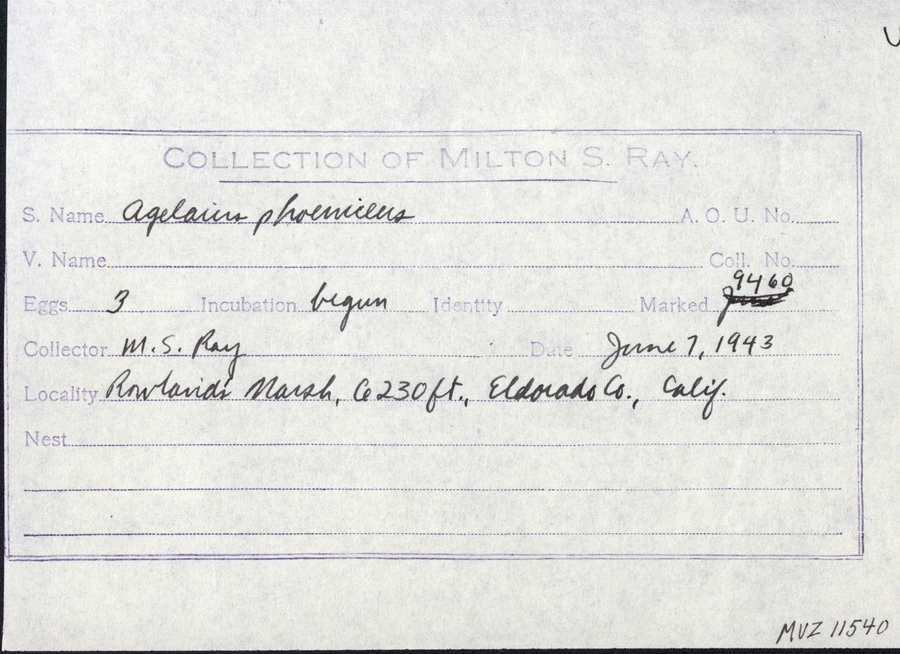 COLLECTION OF MILTON S. RAY.
S. Name Agelaius phoeniceus A. O. U. No.
V. Name Coll. No.
9460
Eggs 3 Incubation begun Identity Marked
Collector M. S. Ray Date June 7, 1943
Locality Rowlands Marsh, 6230 ft., Eldorado Co., Calif.
Nest
MVZ 11540